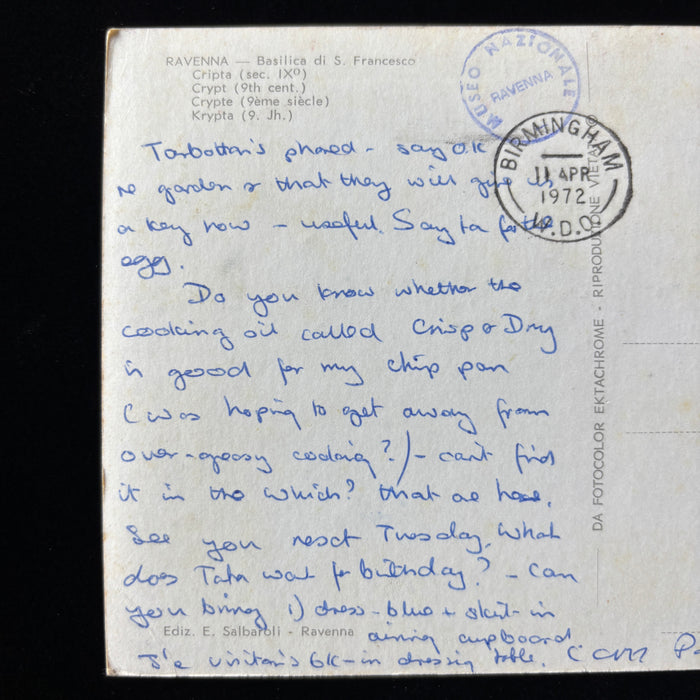 RAVENNA — Basilica di S. Francesco
Cripta (sec. IXº)
Crypt (9th cent.)
Crypte (9ème siècle)
Krypta (9. Jh.)
MUSEO NAZIONALE
RAVENNA
BIRMINGHAM
11 APR
1972
W.D.O.
phoned - say OK
re garden & that they will give us
a key now - useful. Say ta for the
egg.
Do you know whether the
cooking oil called Crisp & Dry
is good for my chip pan
(was hoping to get away from
over-greasy cooking?) - can't find
it in the which? that we have.
See you next Tuesday. What
does Tata want for birthday? - Can
you bring 1) dress - blue + skirt - in
airing cupboard
visitor's bk - in dressing table.
Ediz. E. Salbaroli - Ravenna
DA FOTOCOLOR EKTACHROME - RIPRODUZIONE VIETATA